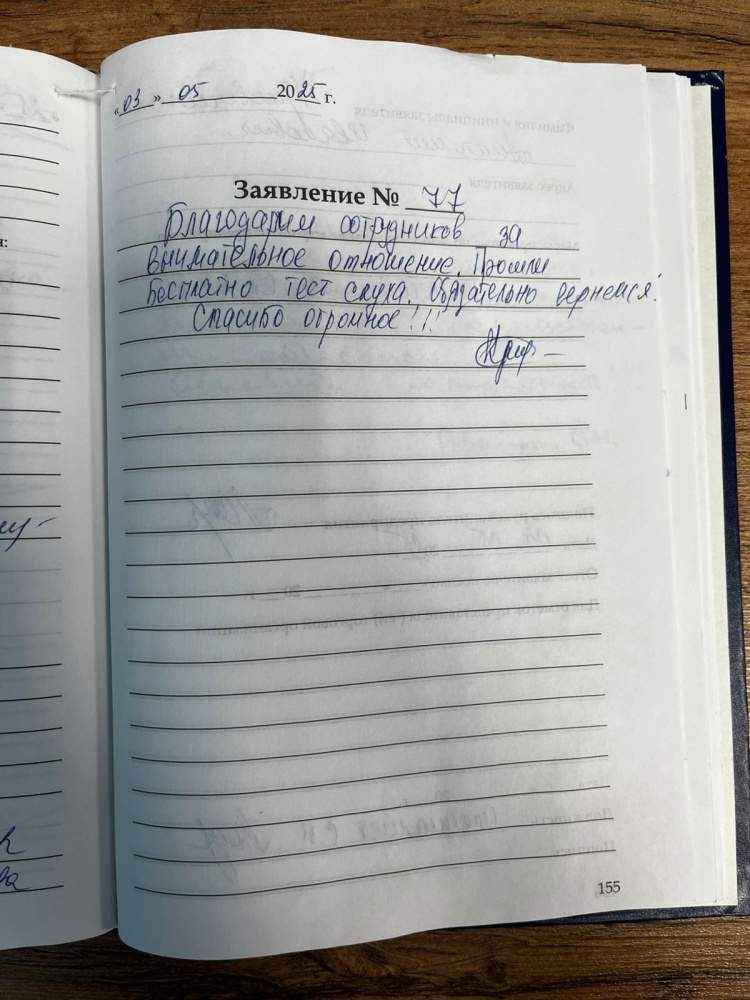 «03» 05 2025 г.
Заявление № 77
Благодарим сотрудников за
внимательное отношение. Прошли
бесплатно тест слуха. Обязательно вернемся!
Спасибо огромное!!!
155